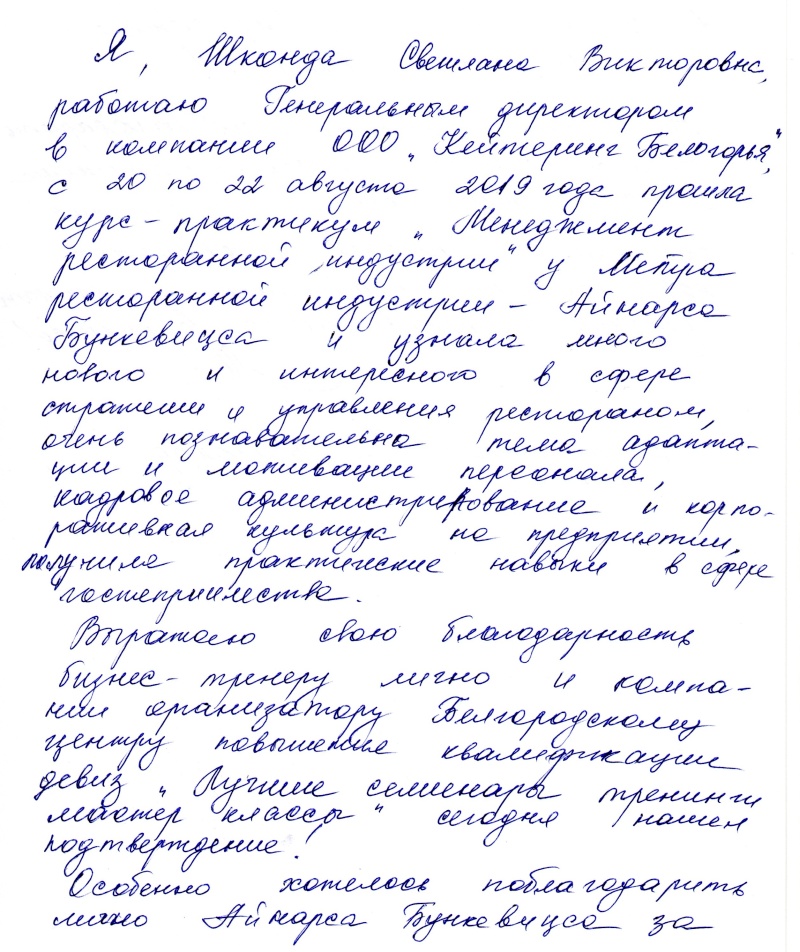 Я, Шконда Светлана Викторовна,
работаю Генеральным директором
в компании ООО „Кейтеринг Белогорья",
с 20 по 22 августа 2019 года прошла
курс-практикум „Менеджмент
ресторанной индустрии" у Метра
ресторанной индустрии - Айнарса
Бункевицса и узнала много
нового и интересного в сфере
стратегии и управления рестораном,
очень познавательна тема адапта-
ции и мотивации персонала,
кадровое администрирование и корпо-
ративная культура на предприятии,
получила практические навыки в сфере
гостеприимства.
Выражаю свою благодарность
бизнес-тренеру лично и компа-
нии организатору Белгородскому
центру повышения квалификации
девиз „Лучшие семинары тренинги
мастер классы" сегодня нашел
подтверждение!
Особенно хотелось поблагодарить
лично Айнарса Бункевицса за